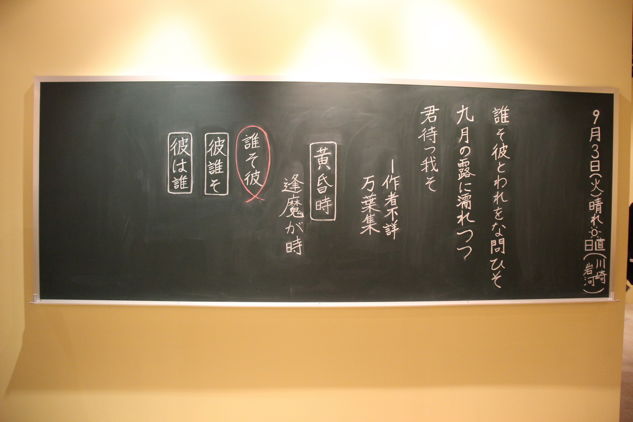 9月3日(火)晴れ 日直(川崎 岩河)
誰そ彼とわれをな問ひそ
九月の露に濡れつつ
君待つ我そ
ー作者不詳
万葉集
黄昏時
逢魔が時
誰そ彼
彼誰そ
彼は誰